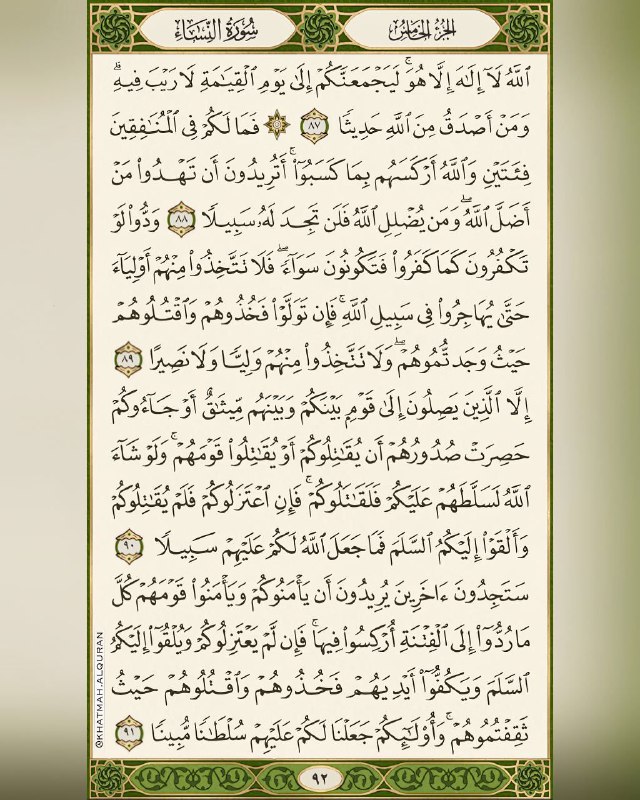 الجزء الخامس
سورة النساء
ٱللَّهُ لَآ إِلَٰهَ إِلَّا هُوَۚ لَيَجْمَعَنَّكُمْ إِلَىٰ يَوْمِ ٱلْقِيَٰمَةِ لَا رَيْبَ فِيهِۗ
وَمَنْ أَصْدَقُ مِنَ ٱللَّهِ حَدِيثًا ٨٧ ۞ فَمَا لَكُمْ فِى ٱلْمُنَٰفِقِينَ
فِئَتَيْنِ وَٱللَّهُ أَرْكَسَهُم بِمَا كَسَبُوٓا۟ۚ أَتُرِيدُونَ أَن تَهْدُوا۟ مَنْ
أَضَلَّ ٱللَّهُۖ وَمَن يُضْلِلِ ٱللَّهُ فَلَن تَجِدَ لَهُۥ سَبِيلًا ٨٨ وَدُّوا۟ لَوْ
تَكْفُرُونَ كَمَا كَفَرُوا۟ فَتَكُونُونَ سَوَآءًۖ فَلَا تَتَّخِذُوا۟ مِنْهُمْ أَوْلِيَآءَ
حَتَّىٰ يُهَاجِرُوا۟ فِى سَبِيلِ ٱللَّهِۚ فَإِن تَوَلَّوْا۟ فَخُذُوهُمْ وَٱقْتُلُوهُمْ
حَيْثُ وَجَدتُّمُوهُمْۖ وَلَا تَتَّخِذُوا۟ مِنْهُمْ وَلِيًّا وَلَا نَصِيرًا ٨٩
إِلَّا ٱلَّذِينَ يَصِلُونَ إِلَىٰ قَوْمٍۭ بَيْنَكُمْ وَبَيْنَهُم مِّيثَٰقٌ أَوْ جَآءُوكُمْ
حَصِرَتْ صُدُورُهُمْ أَن يُقَٰتِلُوكُمْ أَوْ يُقَٰتِلُوا۟ قَوْمَهُمْۚ وَلَوْ شَآءَ
ٱللَّهُ لَسَلَّطَهُمْ عَلَيْكُمْ فَلَقَٰتَلُوكُمْۚ فَإِنِ ٱعْتَزَلُوكُمْ فَلَمْ يُقَٰتِلُوكُمْ
وَأَلْقَوْا۟ إِلَيْكُمُ ٱلسَّلَمَ فَمَا جَعَلَ ٱللَّهُ لَكُمْ عَلَيْهِمْ سَبِيلًا ٩٠
سَتَجِدُونَ ءَاخَرِينَ يُرِيدُونَ أَن يَأْمَنُوكُمْ وَيَأْمَنُوا۟ قَوْمَهُمْ كُلَّ
مَا رُدُّوٓا۟ إِلَى ٱلْفِتْنَةِ أُرْكِسُوا۟ فِيهَاۚ فَإِن لَّمْ يَعْتَزِلُوكُمْ وَيُلْقُوٓا۟ إِلَيْكُمُ
ٱلسَّلَمَ وَيَكُفُّوٓا۟ أَيْدِيَهُمْ فَخُذُوهُمْ وَٱقْتُلُوهُمْ حَيْثُ
ثَقِفْتُمُوهُمْۚ وَأُو۟لَٰٓئِكُمْ جَعَلْنَا لَكُمْ عَلَيْهِمْ سُلْطَٰنًا مُّبِينًا ٩١
٩٢
@KHATMAH.ALQURAN